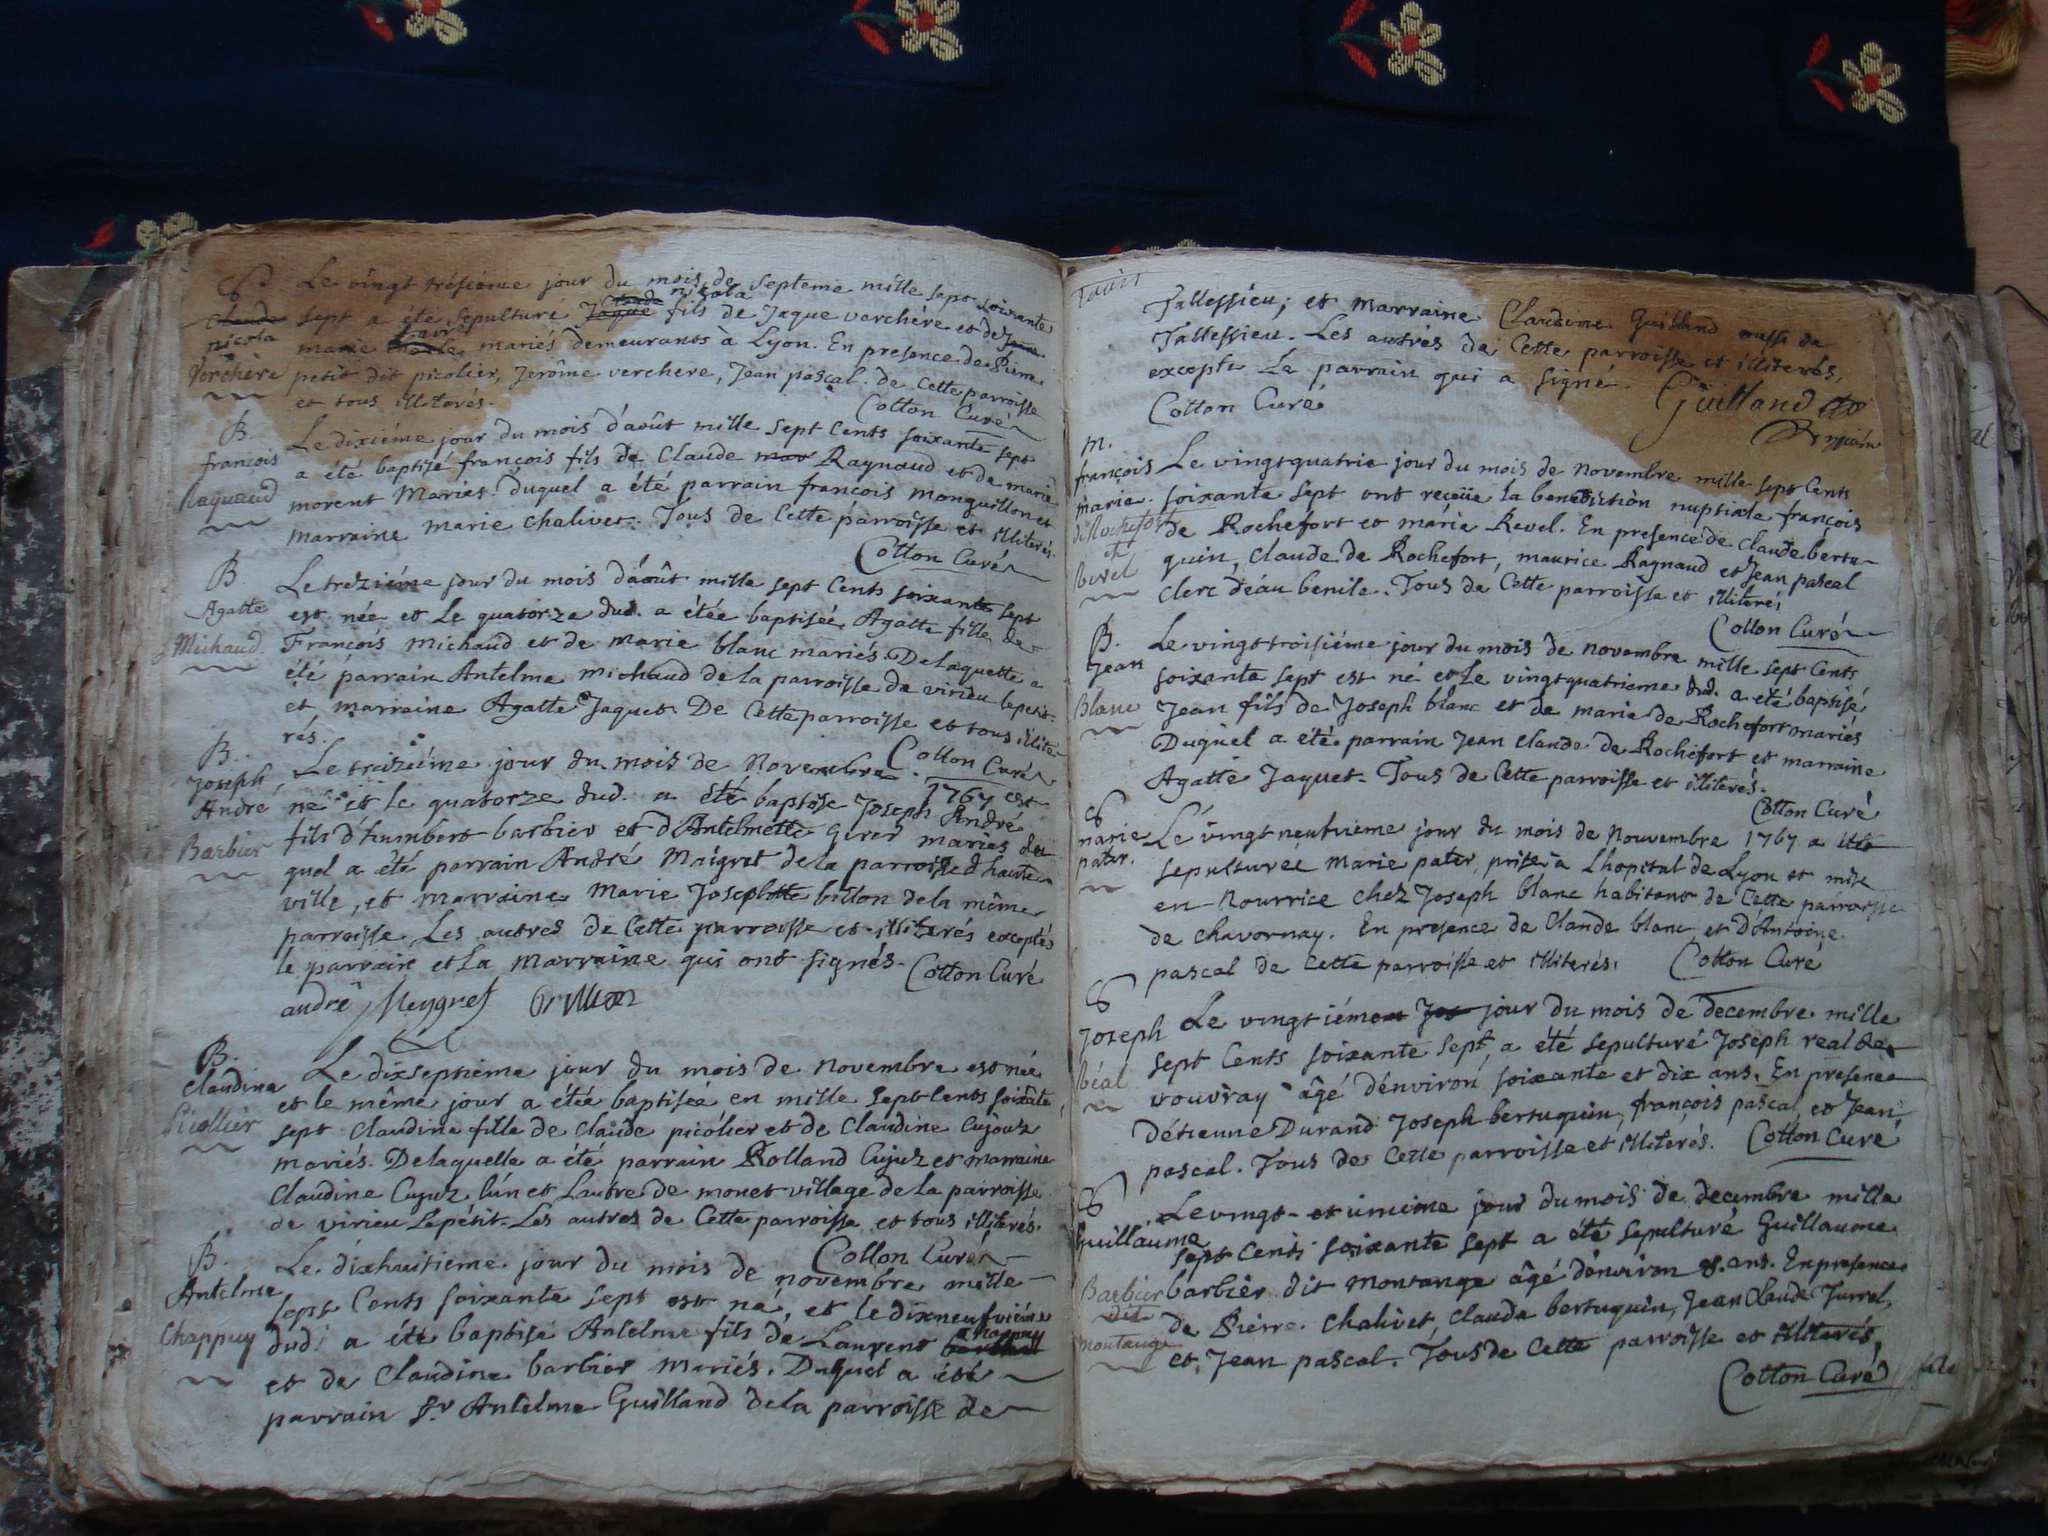 S
Claude
nicola
Verchère
Le vingt trésieme jour du mois de septeme mille sept soixante
sept a été sepulturé Jaque Claude nicola fils de Jaque verchére et de Jean
marie mariés demeurants à Lyon. En presence de Pierre
petit dit picolier, Jerôme verchere, Jean pascal de cette parroisse
et tous illiterés.
Cotton Curé
B.
françois
Raynaud
Le dixiéme jour du mois d'août mille sept Cents soixante sept
a été baptisé françois fils de Claude mar Raynaud et de marie
morent Mariés. Duquel a été parrain françois monguillon et
marraine marie chalivet. Tous de Cette parroisse et illiterés.
Cotton Curé
B.
Agatte
Michaud
Le treziéme jour du mois d'août mille sept Cents soixante sept
est née et Le quatorze dud. a étée baptisée Agatte fille de
François michaud et de marie blanc mariés Delaquelle a
été parrain Antelme michaud de la parroisse de virieu lepetit
et marraine Agatte Jaquet De Cette parroisse et tous illite
rés.
Cotton Curé
B.
Joseph
André
Barbier
Le treiziéme jour du mois de Novembre 1767 est
né et le quatorze dud. a été baptise Joseph André
fils d'humbert barbier et d'Antelmette Girer mariés du
quel a été parrain André Maigret de la parroisse d'haute
ville, et marraine Marie Josephtte billon dela même
parroisse Les autres de Cette parroisse et illiterés exceptés
le parrain et La marraine qui ont signés. Cotton Curé
andré Meygret Billion
B.
Claudine
Picollier
Le dixseptieme jour du mois de novembre est née
et le même jour a étée baptisée en mille sept Cents soixate
sept Claudine fille de Claude picólier et de Claudine Cujouz
mariés. Delaquelle a été parrain Rolland Cujuz et marraine
Claudine Cujuz lún et Lautre de monet village de la parroisse
de virieu Lepétit. Les autres de Cette parroisse et tous illiterés.
Cotton Curé
B.
Antelme
Chappuy
Le dixhuitieme jour du mois de novembre mille
sept Cents soixante sept est né, et le dixneufviéme
dud. a été baptisé Antelme fils de Laurent chappuy
et de Claudine barbier Mariés. Duquel a été
parrain Sr Antelme Guilland de la parroisse de
Tallessieu; et marraine Claudine Guilland aussi de
Tallessieu. Les autres de Cette parroisse et illiterés,
excepte Le parrain qui a signé. Guilland
Cotton Curé
m.
françois
marie
de Rochefort
et
Revel
Le vingtquatrie jour du mois de novembre mille sept Cents
soixante sept ont reçeüe la benediction nuptiale françois
de Rochefort et márie Revel. En presence de Claude bértu-
quin, Claude de Rochefort, maurice Raynaud et Jean pascal
clerc déau benite. Tous de Cette parroisse et illiterés
Cotton Curé
B.
Jean
Blanc
Le vingttroisiéme jour du mois de novembre mille sept Cents
soixante sept est né et Le vingtquatrieme dud. a été baptisé
Jean fils de Joseph blanc et de marie de Rochefort mariés
Duquel a été parrain Jean Claude de Rochefort et marraine
Agatte Jaquet. Tous de Cette parroisse et illiterés.
Cotton Curé
S
marie
pater.
Le vingt neufvieme jour du mois de Nouvembre 1767 a été
sepulturée Marie pater, prise à Lhopital de Lyon et mise
en Nourrice chez Joseph blanc habitant de Cette parroisse
de chavornay. En presence de Claude blanc et d'Antoine
pascal de Cette parroisse et illiterés. Cotton Curé
S
Joseph
Réal
Le vingtiéme Jos jour du mois de decembre mille
sept Cents soixante sept, a été sepulturé Joseph réal de
vouvray âgé dénviron soixante et dix ans. En presence
détienne Durand Joseph bertuquin, françois pascal et Jean
pascal. Tous de Cette parroisse et illiterés. Cotton Curé
S
Guillaume
Barbier
dit
montange
Levingt-et unieme jour du mois de decembre mille
sept Cents soixante sept a été sepulturé Guillaume
barbier dit montange âgé dénviron 8. ans. En presence
de Pierre chalivet, Claude bertuquin, Jean Claude Turrel,
et Jean pascal. Tous de Cette parroisse et illiterés,
Cotton Curé